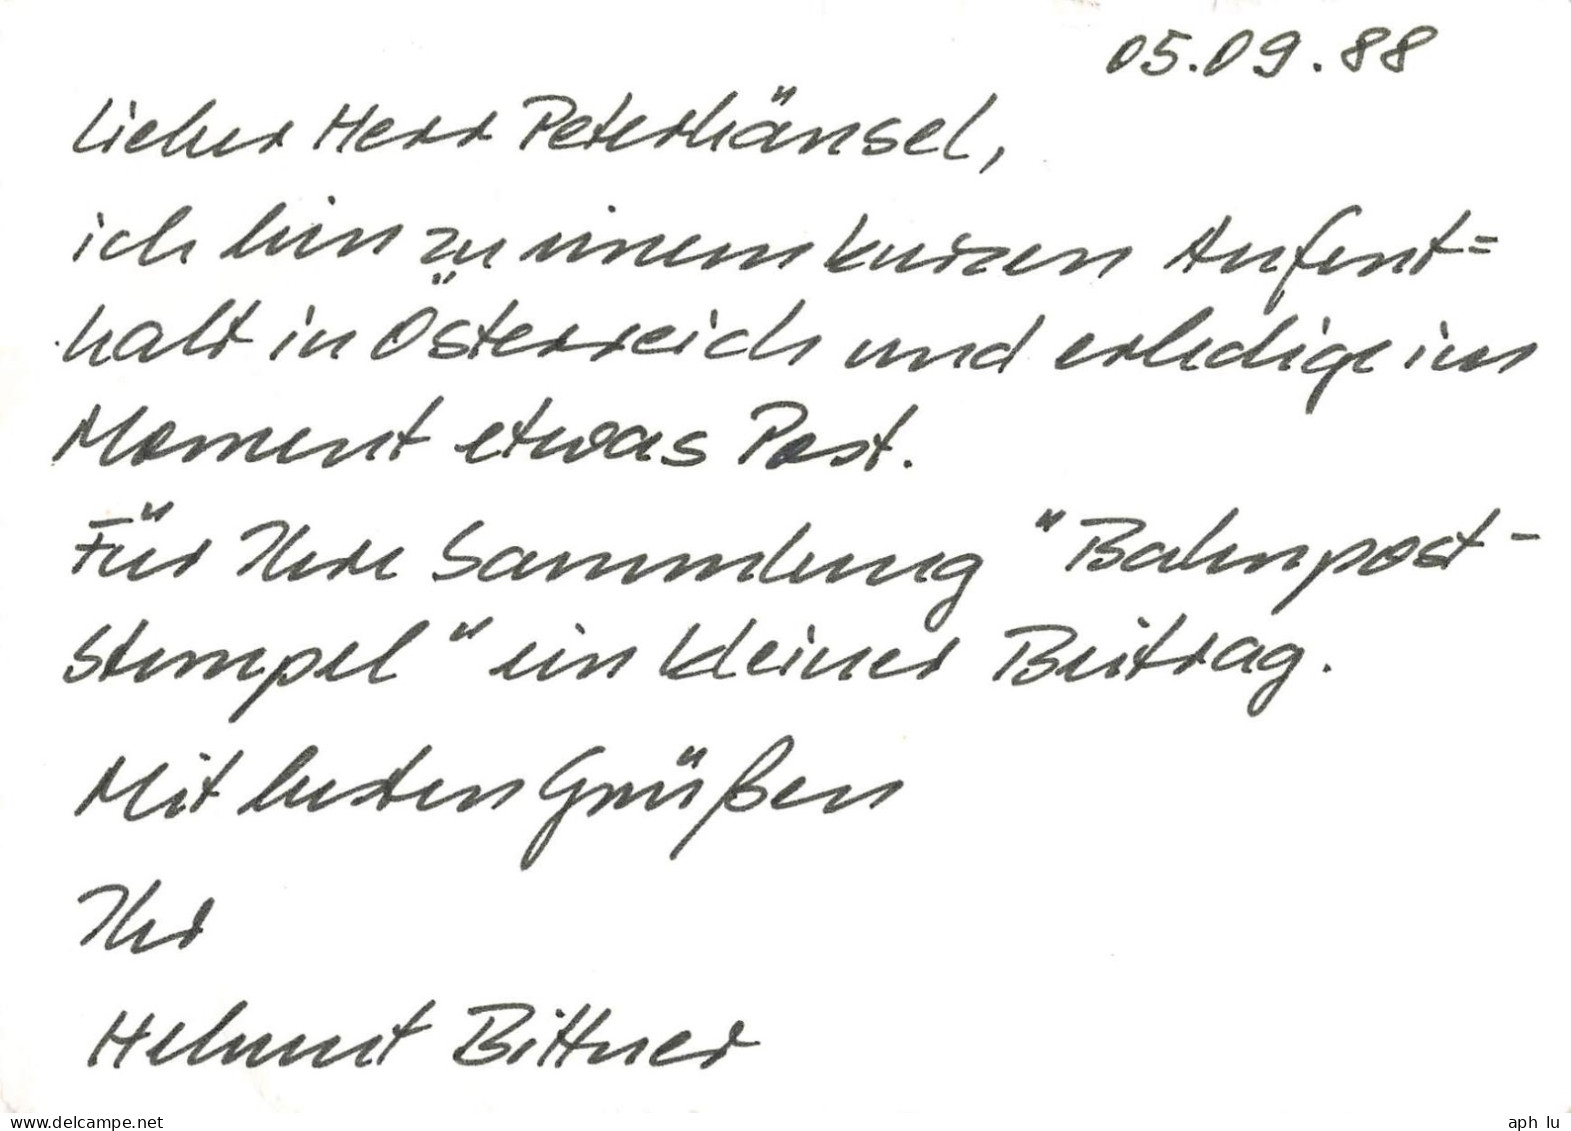 05.09.88
Lieber Herr Peterhänsel,
ich bin zu einem kurzen Aufent=
halt in Österreich und erledige im
Moment etwas Post.
Für Ihre Sammlung "Bahnpost-
Stempel" ein kleiner Beitrag.
Mit besten Grüßen
Ihr
Helmut Bittner
www.delcampe.net
aph_lu